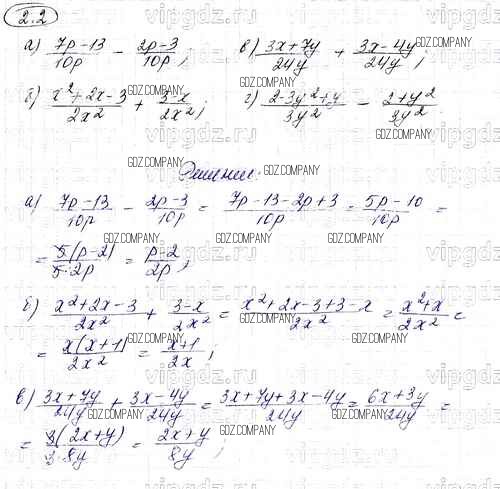 2.2
а) (7p-13)/(10p) - (2p-3)/(10p); в) (3x+7y)/(24y) + (3x-4y)/(24y);
б) (x²+2x-3)/(2x²) + (3-x)/(2x²); г) (2-3y²+y)/(3y²) - (2+y²)/(3y²).
Решение:
а) (7p-13)/(10p) - (2p-3)/(10p) = (7p-13-2p+3)/(10p) = (5p-10)/(10p) =
= (5(p-2))/(5·2p) = (p-2)/(2p);
б) (x²+2x-3)/(2x²) + (3-x)/(2x²) = (x²+2x-3+3-x)/(2x²) = (x²+x)/(2x²) =
= (x(x+1))/(2x²) = (x+1)/(2x);
в) (3x+7y)/(24y) + (3x-4y)/(24y) = (3x+7y+3x-4y)/(24y) = (6x+3y)/(24y) =
= (3(2x+y))/(3·8y) = (2x+y)/(8y);